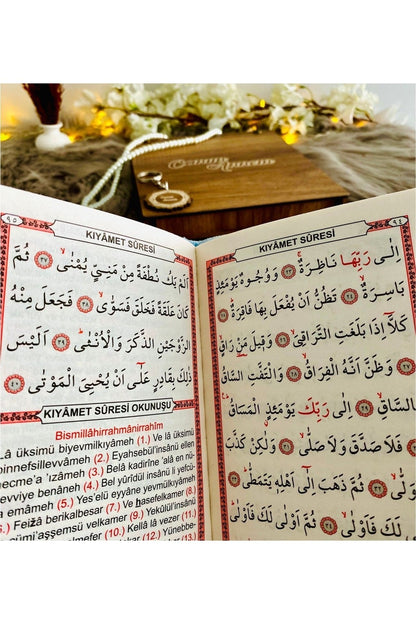 ٩٤
KIYÂMET SÛRESİ
اِلٰى رَبِّهَا نَاظِرَةٌۚ ﴿٢٣﴾ وَوُجُوهٌ يَوْمَئِذٍ
بَاسِرَةٌۙ ﴿٢٤﴾ تَظُنُّ اَنْ يُفْعَلَ بِهَا فَاقِرَةٌۜ ﴿٢٥﴾
كَلَّٓا اِذَا بَلَغَتِ التَّرَاقِيَۙ ﴿٢٦﴾ وَقِيلَ مَنْ رَاقٍۙ
﴿٢٧﴾ وَظَنَّ اَنَّهُ الْفِرَاقُۙ ﴿٢٨﴾ وَالْتَفَّتِ السَّاقُ
السَّاقِۙ ﴿٢٩﴾ اِلٰى رَبِّكَ يَوْمَئِذٍ الْمَسَاقُۜ
﴿٣٠﴾ فَلَا صَدَّقَ وَلَا صَلّٰىۙ ﴿٣١﴾ وَلٰكِنْ كَذَّبَ
﴿٣٢﴾ ثُمَّ ذَهَبَ اِلٰٓى اَهْلِه۪ يَتَمَطّٰىۜ ﴿٣٣﴾
اَوْلٰى لَكَ فَاَوْلٰىۙ ﴿٣٤﴾ ثُمَّ اَوْلٰى لَكَ فَاَوْلٰىۜ
٩٥
KIYÂMET SÛRESİ
اَلَمْ يَكُ نُطْفَةً مِنْ مَنِيٍّ يُمْنٰىۙ ﴿٣٧﴾ ثُمَّ
كَانَ عَلَقَةً فَخَلَقَ فَسَوّٰىۙ ﴿٣٨﴾ فَجَعَلَ مِنْهُ
الزَّوْجَيْنِ الذَّكَرَ وَالْاُنْثٰىۜ ﴿٣٩﴾ اَلَيْسَ
ذٰلِكَ بِقَادِرٍ عَلٰٓى اَنْ يُحْيِيَ الْمَوْتٰى ﴿٤٠﴾
KIYÂMET SÛRESİ OKUNUŞU
Bismillâhirrahmânirrahîm
Lâ üksimü biyevmilkıyâmeh (1.) Ve lâ üksimü
binnefsillevvâmeh (2.) Eyahsebül'insânü ellen
necme'a 'ızâmeh (3.) Belâ kadirîne 'alâ en nü-
sevviye benâneh (4.) Bel yürîdül insânü li yefcü-
emâmeh (5.) Yes'elü eyyâne yevmülkıyâmeh
(6.) Feizâ berikalbesar (7.) Ve hasefelkamer (8.)
cümi'aşşemsü velkamer (9.) Yekûlül'insânü
mefer (10.) Kellâ lâ vezer (11.)
(12.) Yünebbe-
(13.)